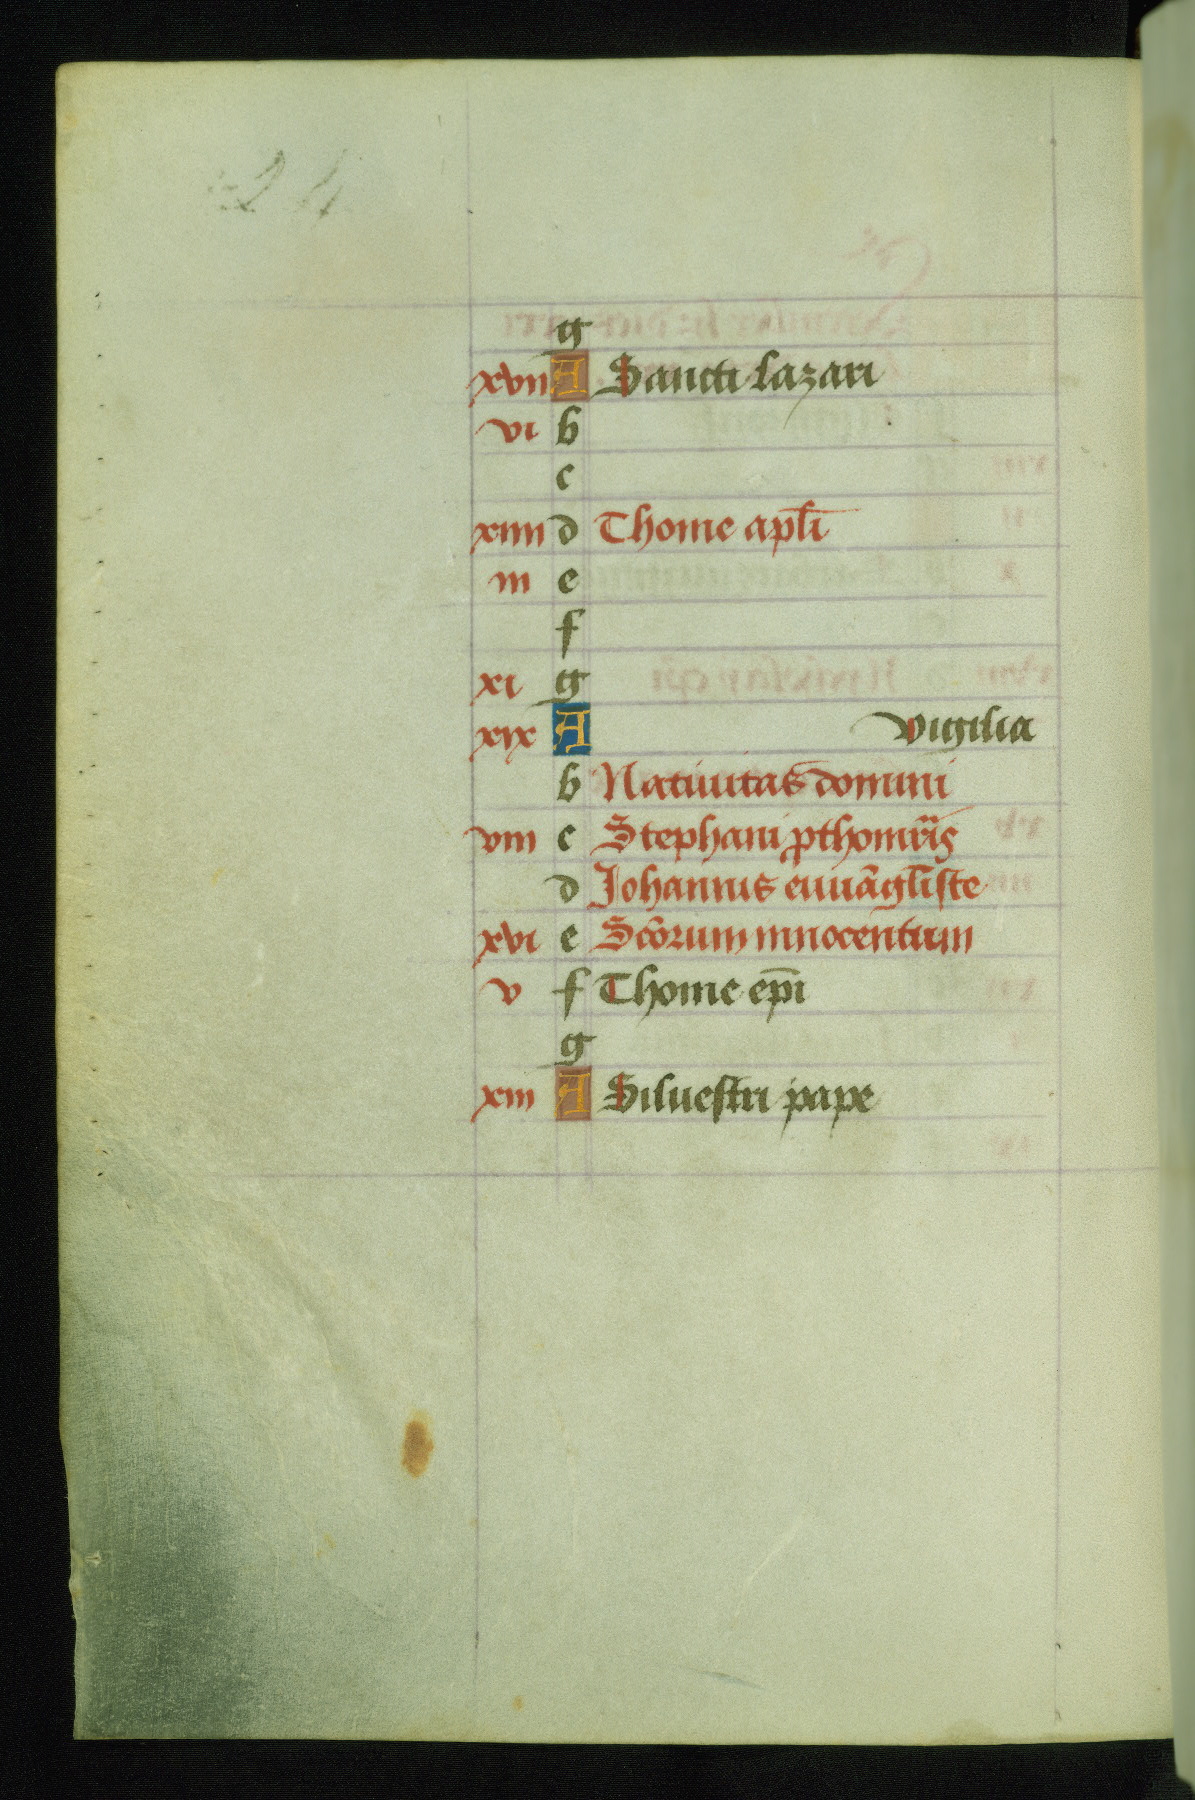 24
g
xvii A Sancti lazari
vi b
c
xiiii d Thome apl̄i
iii e
f
xi g
xix A vigilia
b Natiuitas domini
viii c Stephani ꝓthomr̄is
d Johannis euuāgl̄iste
xvi e Scōrum innocentum
v f Thome ep̄i
g
xiii A Siluestri pape